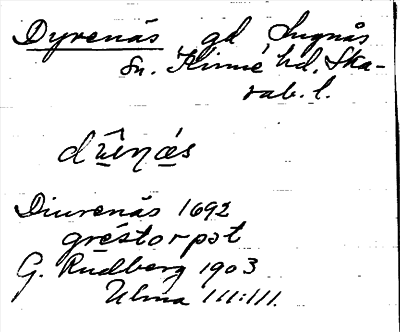 Dyrenäs gd Sugnås
sn. Kinne hd. Ska-
rab. l.
dŷe̱ṉá̱s
Diurenäs 1692
gréstorpat
G. Rudberg 1903
Ulma 111:111.